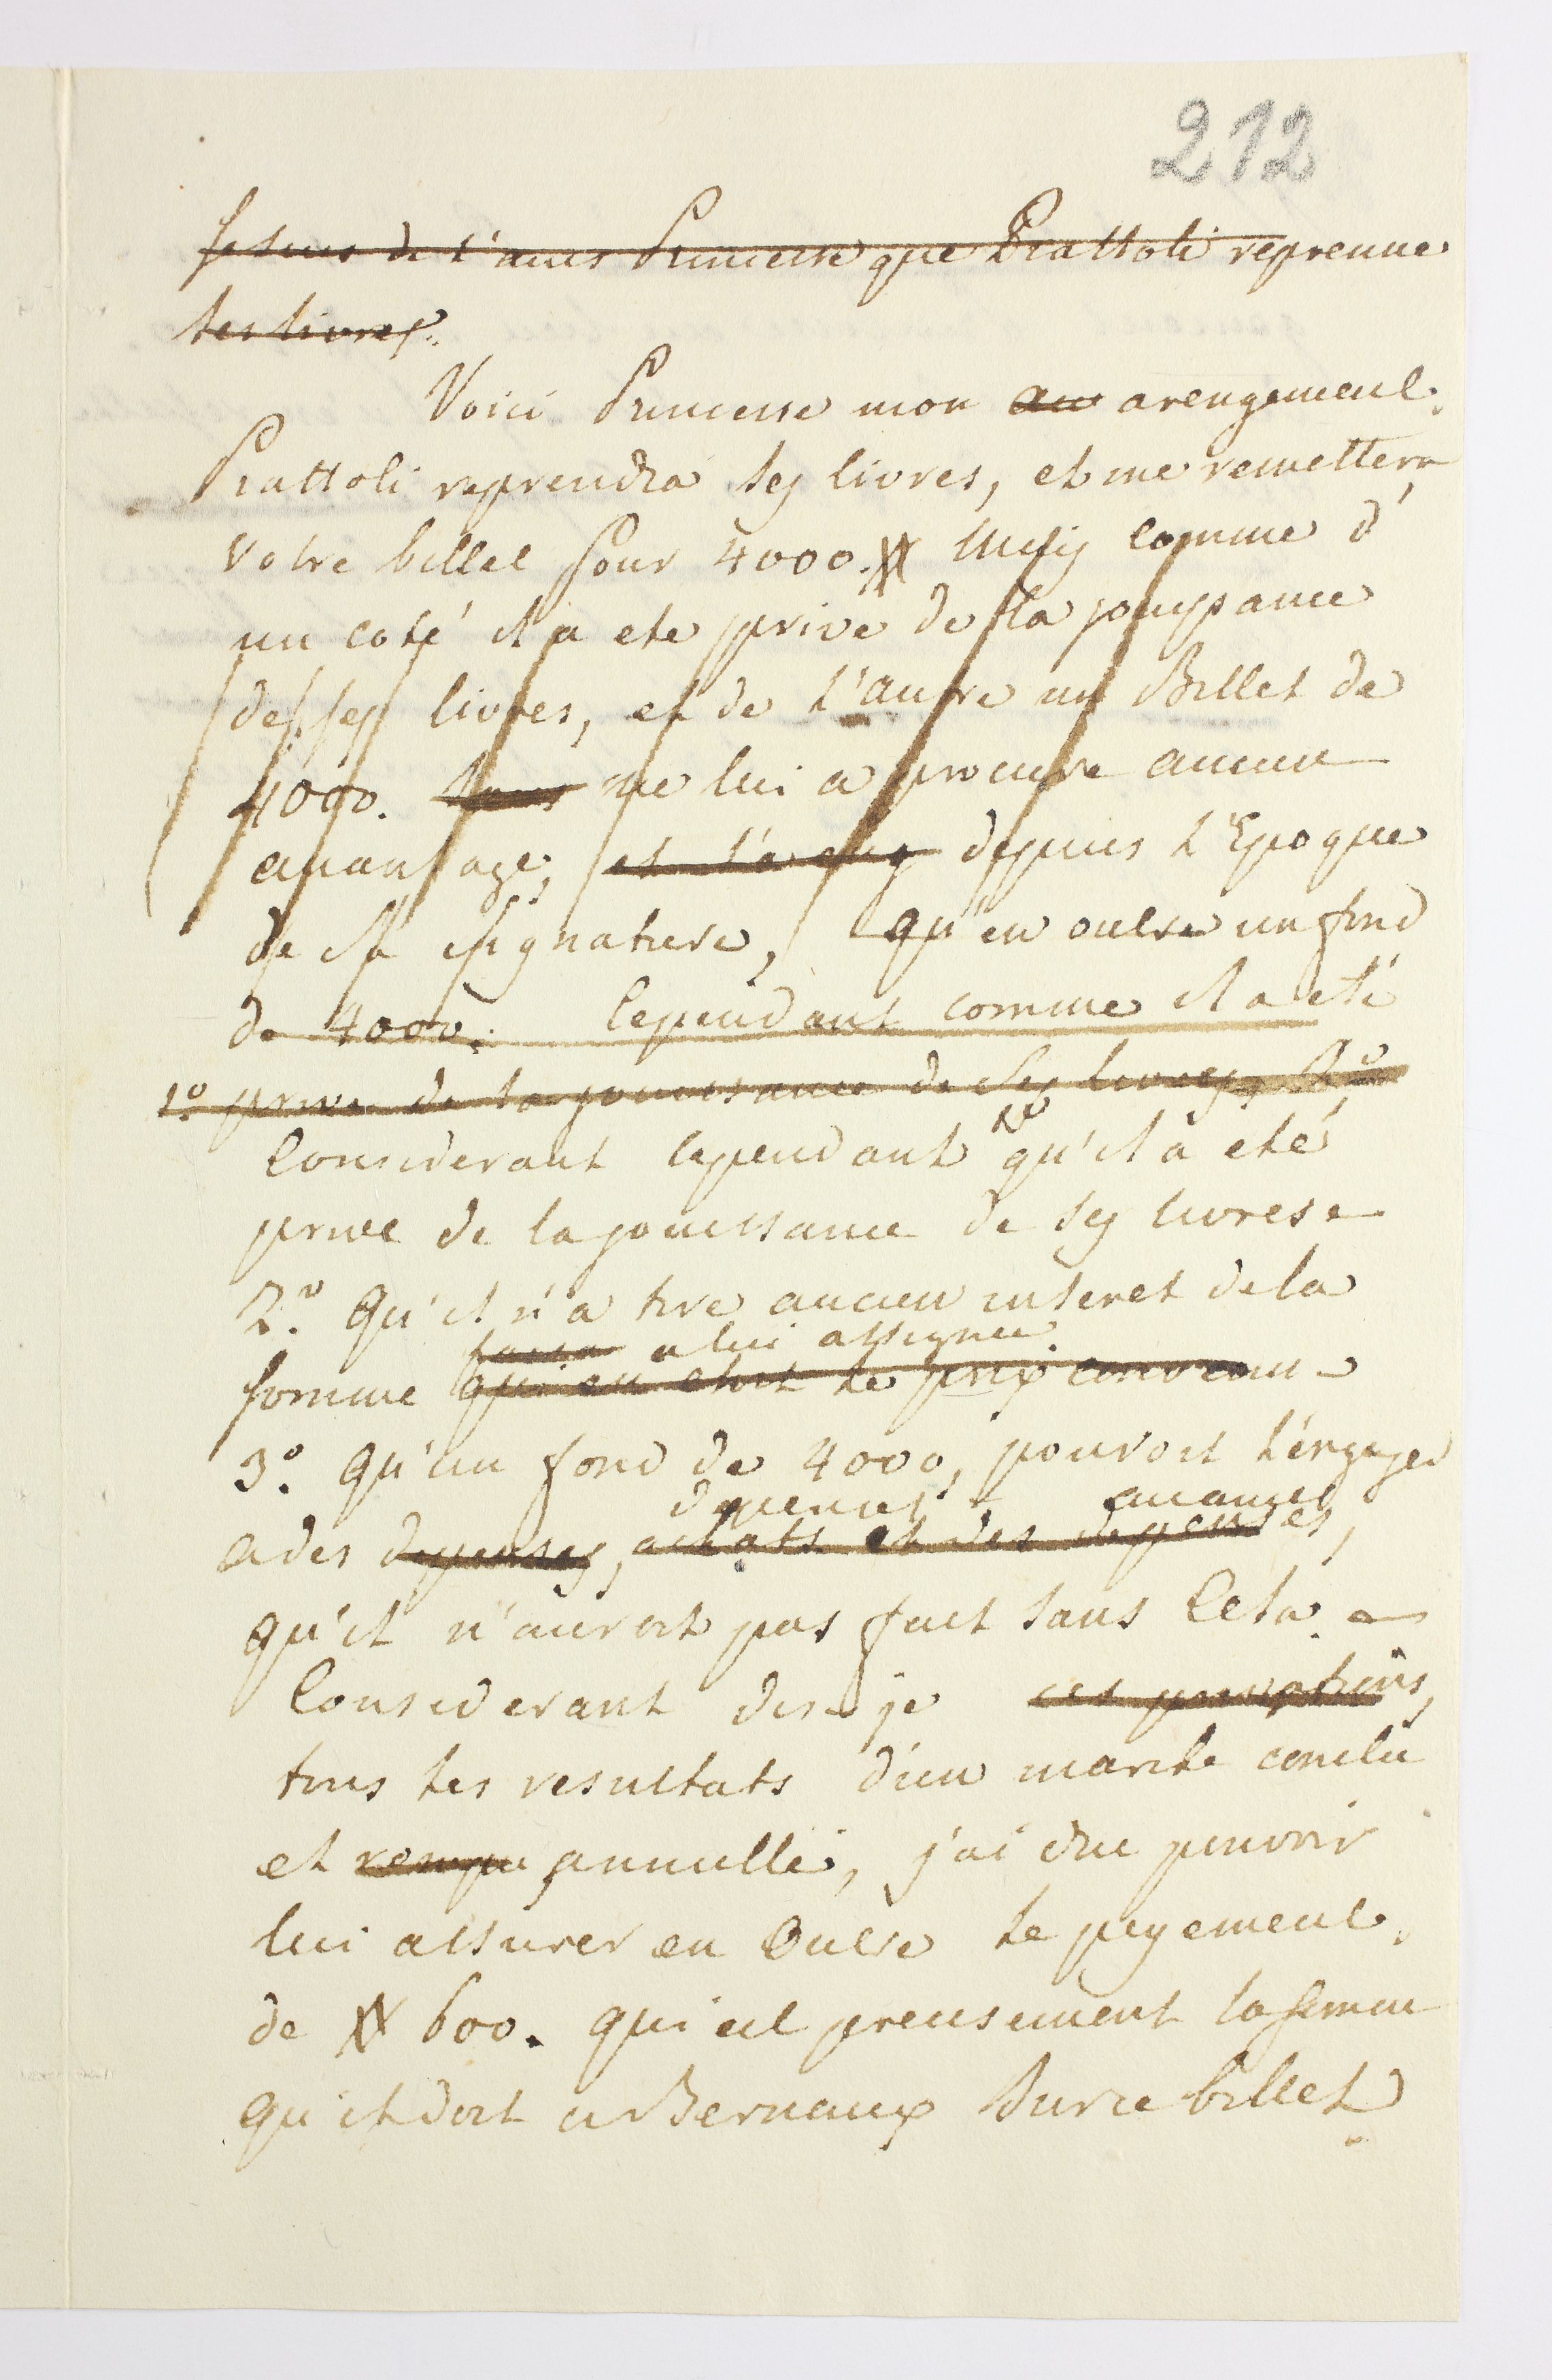 212
je suis de l'avis Princesse que Piattoli reprenne
ses livres.
Voici Princesse mon arengement.
Piattoli reprendra ses livres, et me remettera
votre billet pour 4000. # Mais comme d'
un coté il a ete privé de la jouissance
de ses livres, et de l'autre un Billet de
4000. ne lui a procure aucun
avantage, depuis l'Epoque
de sa signature, qu'en outre un fond
de 4000. Cependant comme il a été
1º privé de la jouissance de ses livres, 2º
Considerant cependant 1º qu'il a eté
privé de la jouissance de ses livres
2º. Qu'il n'a tiré aucun interet de la
a lui assignee
somme qui en etoit le prix convenu
3º. Qu'un fond de 4000, pouvoit l'engager
depenses avances
a des depenses, achats et des depenses,
qu'il n'auroit pas fait sans Cela
Considerant dis-je ces privations,
tous les resultats d'un marché conclu
et rompu, annullé, j'ai cru pouvoir
lui assurer en Outre le payement
de # 600. qui est precisement la somme
qu'il doit a Bernaux Sur ce billet